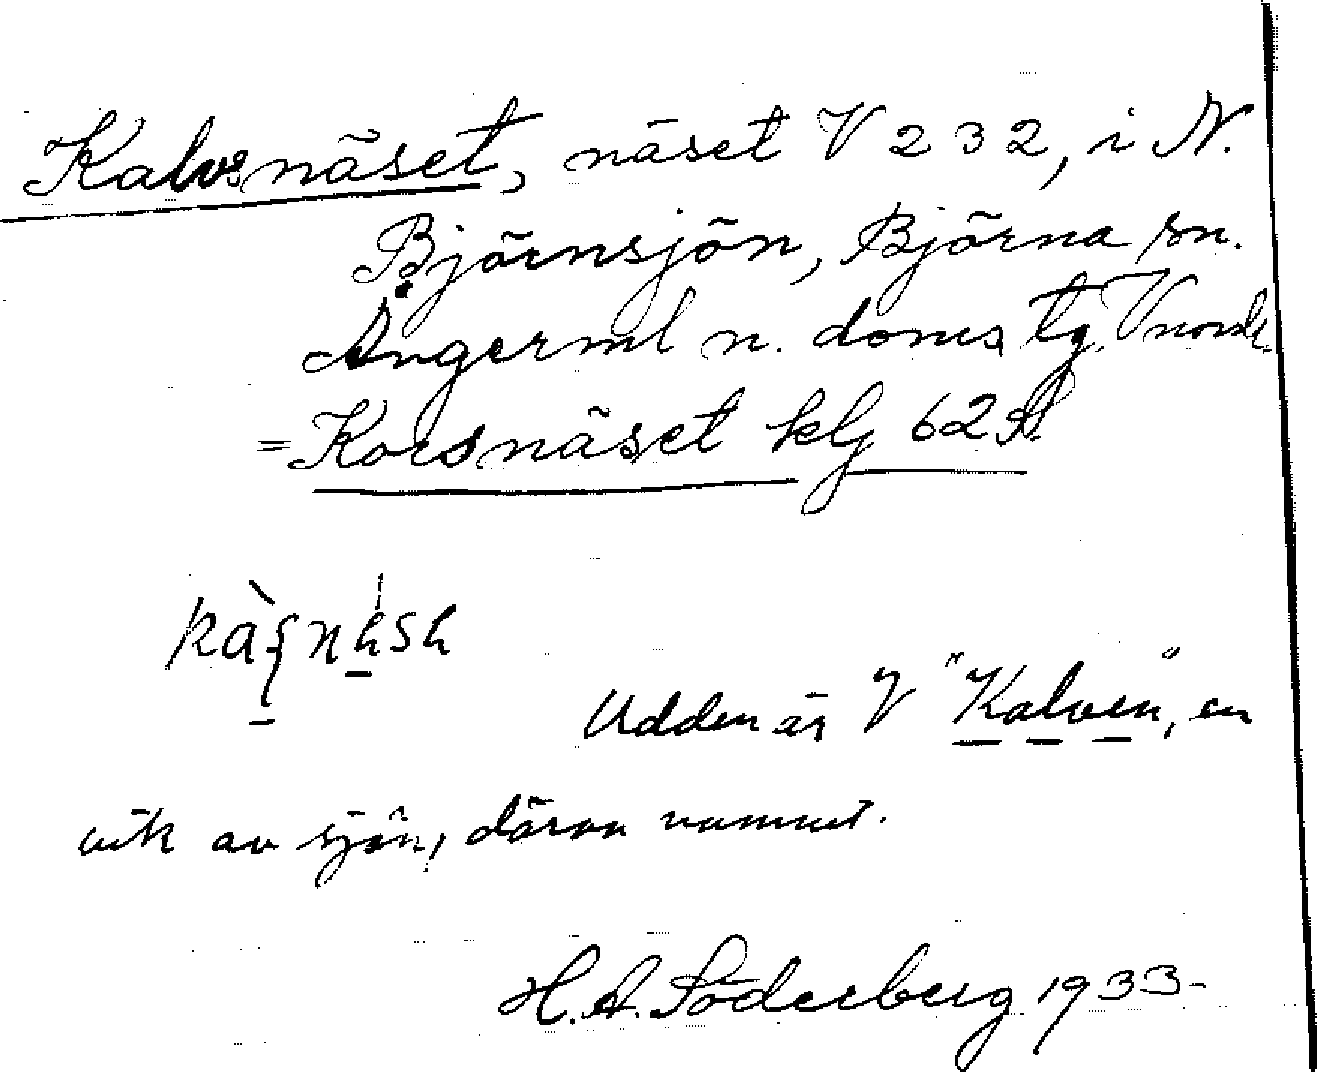 Kalvsnäset, näset V 232, i N.
Björnsjön, Björna sn.
Ångerml n. doms tg. Vnorrl.
= Korsnäset klj 62 A
Udden är V "Kalven", en
vik av sjön, därav namnet.
H. A. Söderberg 1933-